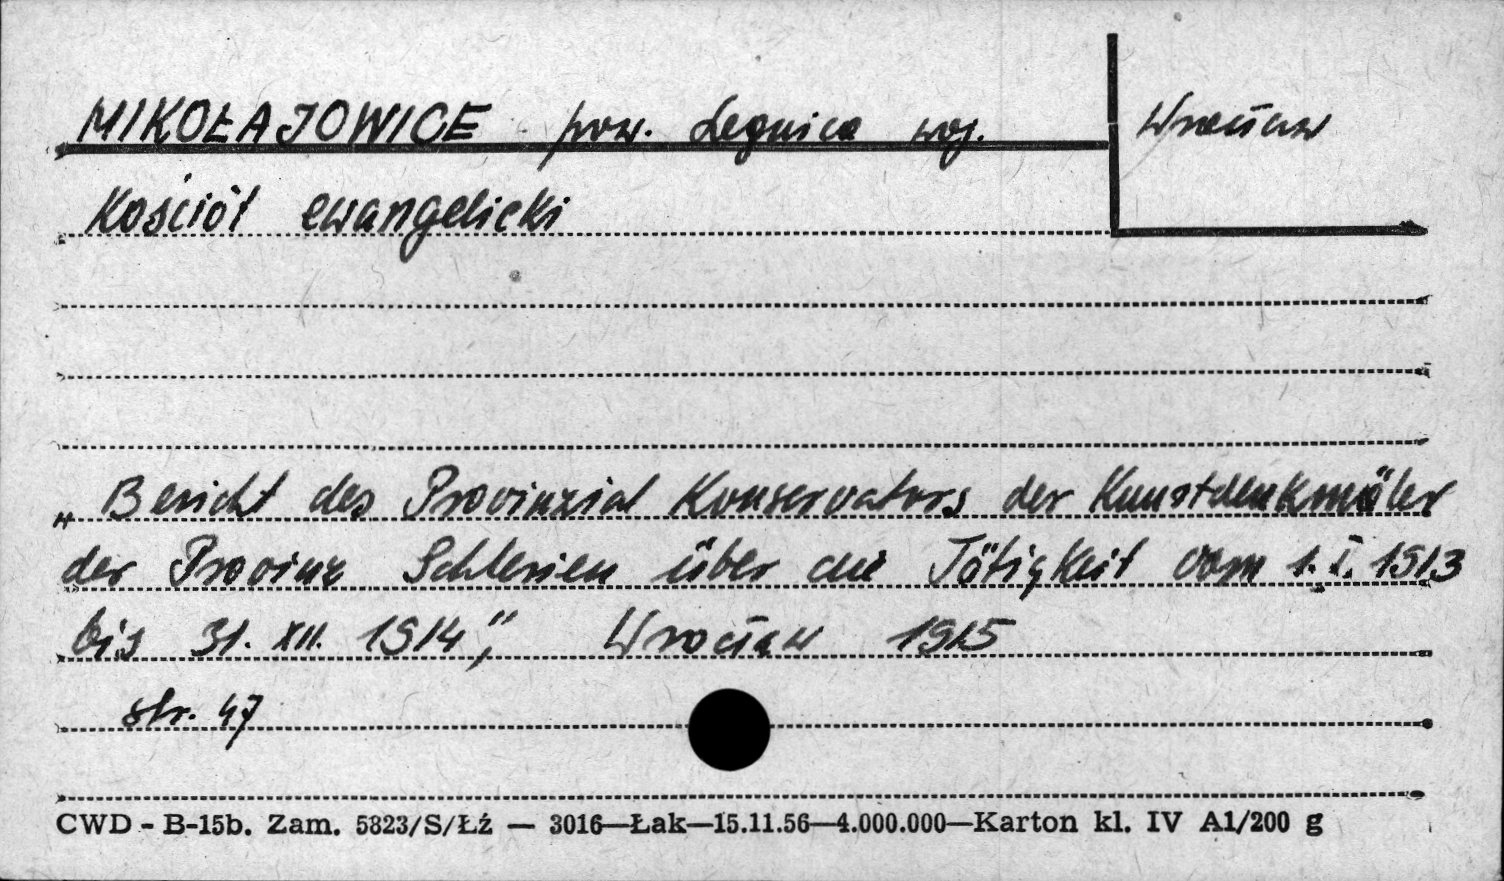 MIKOŁAJOWICE pow. Legnica woj. Wrocław
Kościół ewangelicki
„Bericht des Provinzial Konservators der Kunstdenkmäler
der Provinz Schlesien über die Tätigkeit vom 1.I.1913
bis 31.XII.1914”, Wrocław 1915
str. 47
CWD - B-15b. Zam. 5823/S/Łź — 3016—Łak—15.11.56—4.000.000—Karton kl. IV A1/200 g